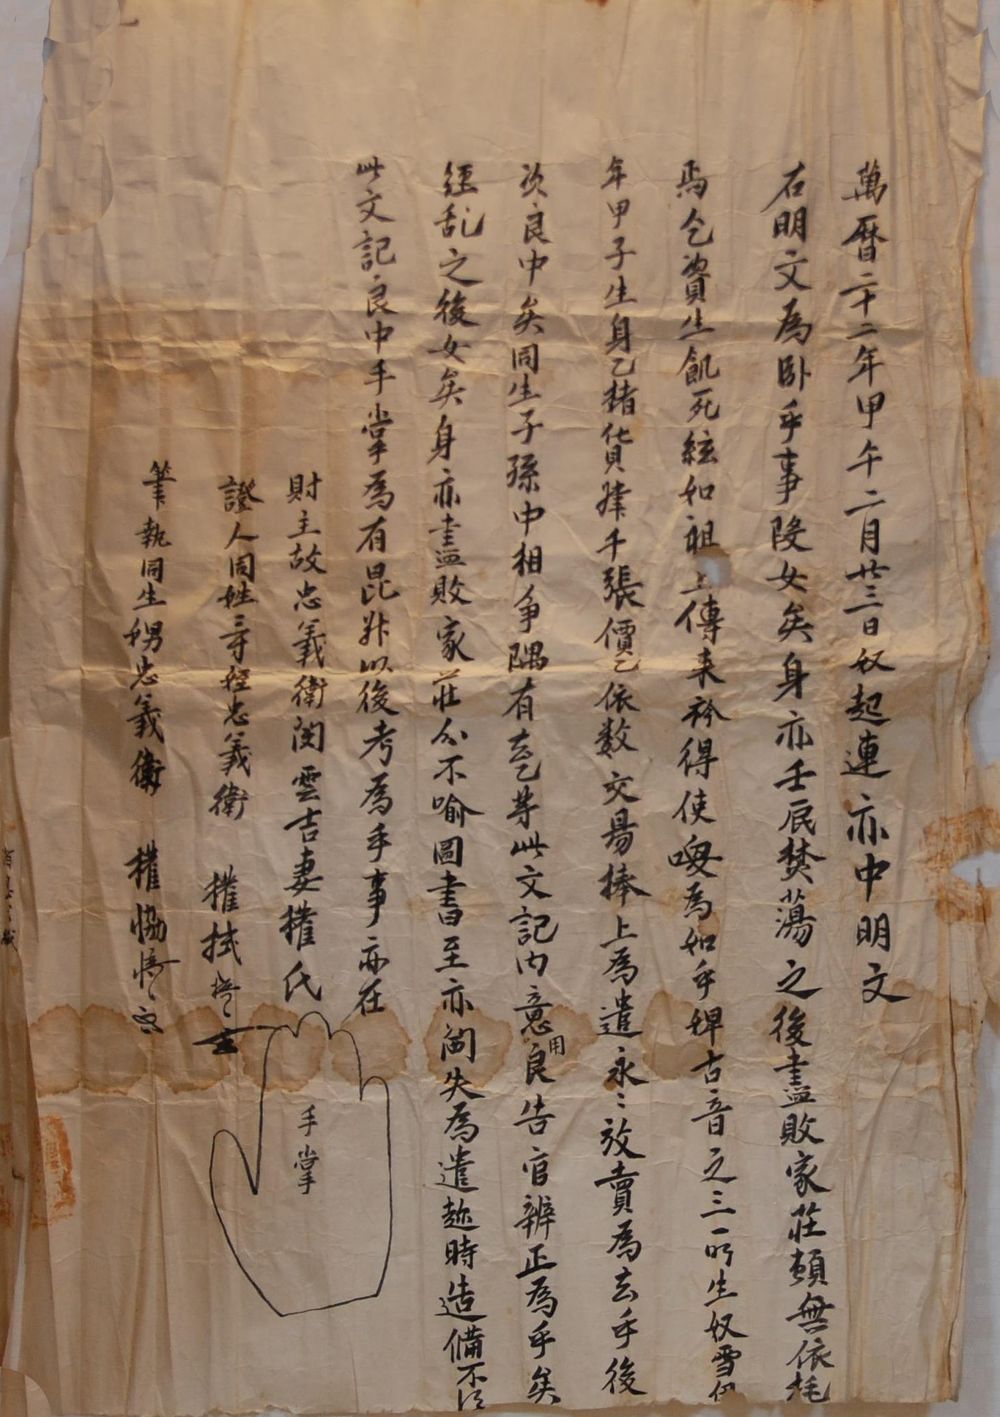 萬曆二十二年甲午二月廿三日奴起連亦中明文
右明文為臥乎事段女矣身亦壬辰焚蕩之後盡敗家莊頓無依托
焉乞資生飢死絃如祖上傳来衿得使喚為如乎婢古音之三所生奴雪
年甲子生身乙楮貨肆千張價乙依數交易捧上為遣永〻放賣為去乎後
次良中矣同生子孫中相爭隅有去乙等此文記內意用良告官辨正為乎矣
經乱之後女矣身亦盡敗家莊叱分不喻圖書至亦閪失為遣趁時造備不
此文記良中手掌為有昆並以後考為乎事亦在
財主故忠義衛閔雲吉妻權氏
手掌
證人同姓三寸姪忠義衛 權拭
筆執同生娚忠義衛 權恊